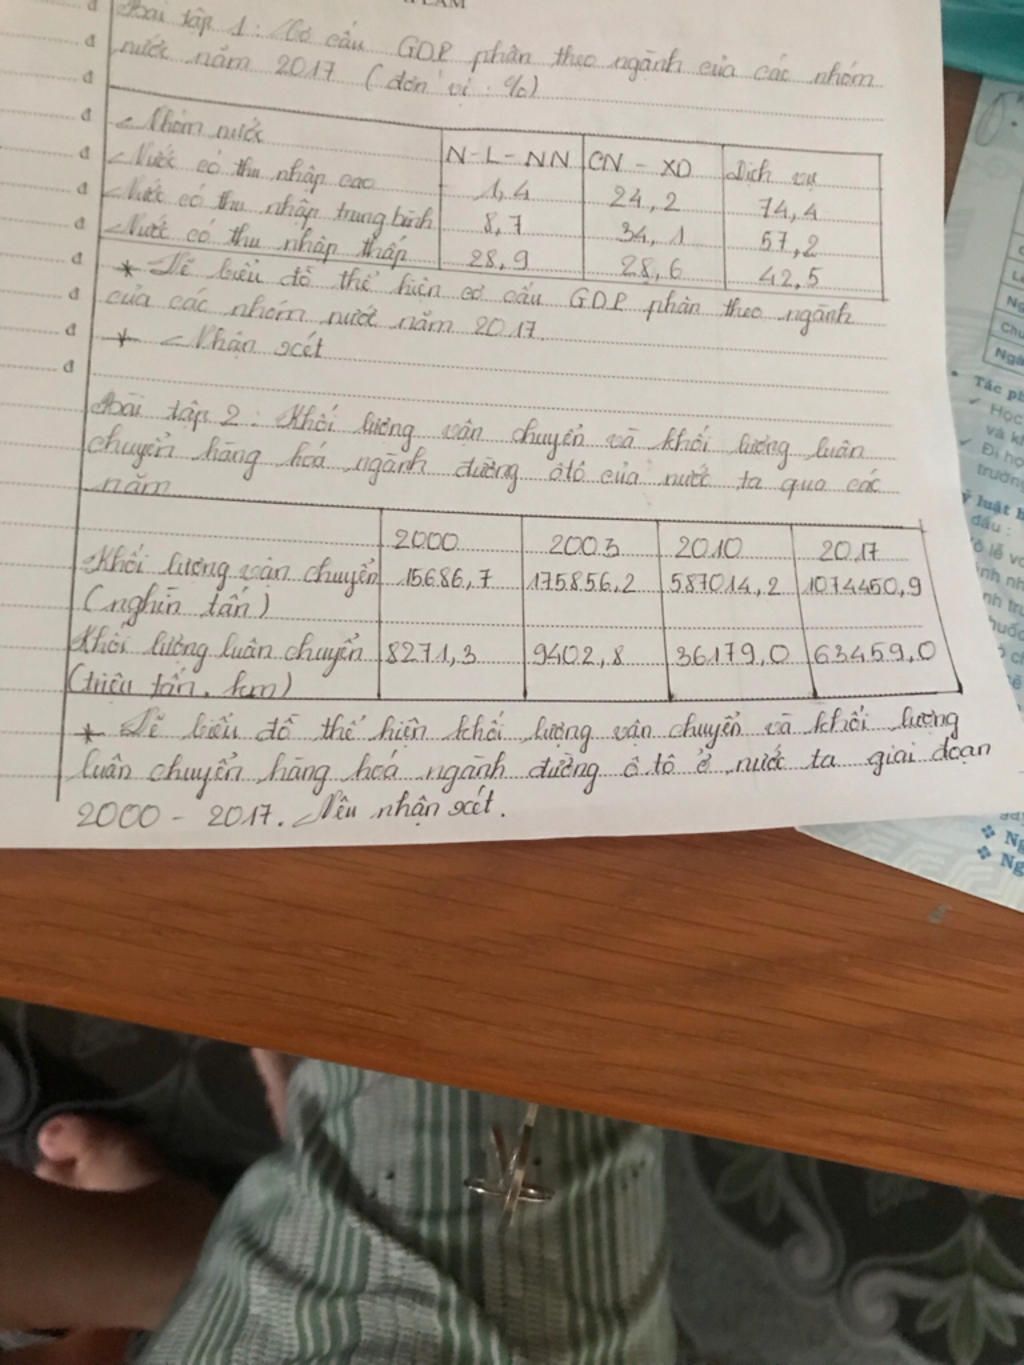 Bài tập 1: Cơ cấu GDP phân theo ngành của các nhóm
nước năm 2017 (đơn vị: %)
Nhóm nước N-L-NN CN-XD Dịch vụ
Nước có thu nhập cao 1,4 24,2 74,4
Nước có thu nhập trung bình 8,7 34,1 57,2
Nước có thu nhập thấp 28,9 28,6 42,5
* Vẽ biểu đồ thể hiện cơ cấu GDP phân theo ngành
của các nhóm nước năm 2017.
* Nhận xét
Bài tập 2: Khối lượng vận chuyển và khối lượng luân
chuyển hàng hoá ngành đường ôtô của nước ta qua các
năm
2000 2003 2010 2017
Khối lượng vận chuyển 15686,7 175856,2 587014,2 1074450,9
(nghìn tấn)
Khối lượng luân chuyển 8271,3 9402,8 36179,0 63459,0
(triệu tấn.km)
* Vẽ biểu đồ thể hiện khối lượng vận chuyển và khối lượng
luân chuyển hàng hoá ngành đường ô tô ở nước ta giai đoạn
2000 - 2017. Nêu nhận xét.
đ
đ
đ
đ
đ
đ
đ
đ
đ
đ
đ
Chu
Tác ph
✓ Học
và k
✓ Đi họ
trường
ỷ luật
đầu :
❖ Ng
❖ Ng